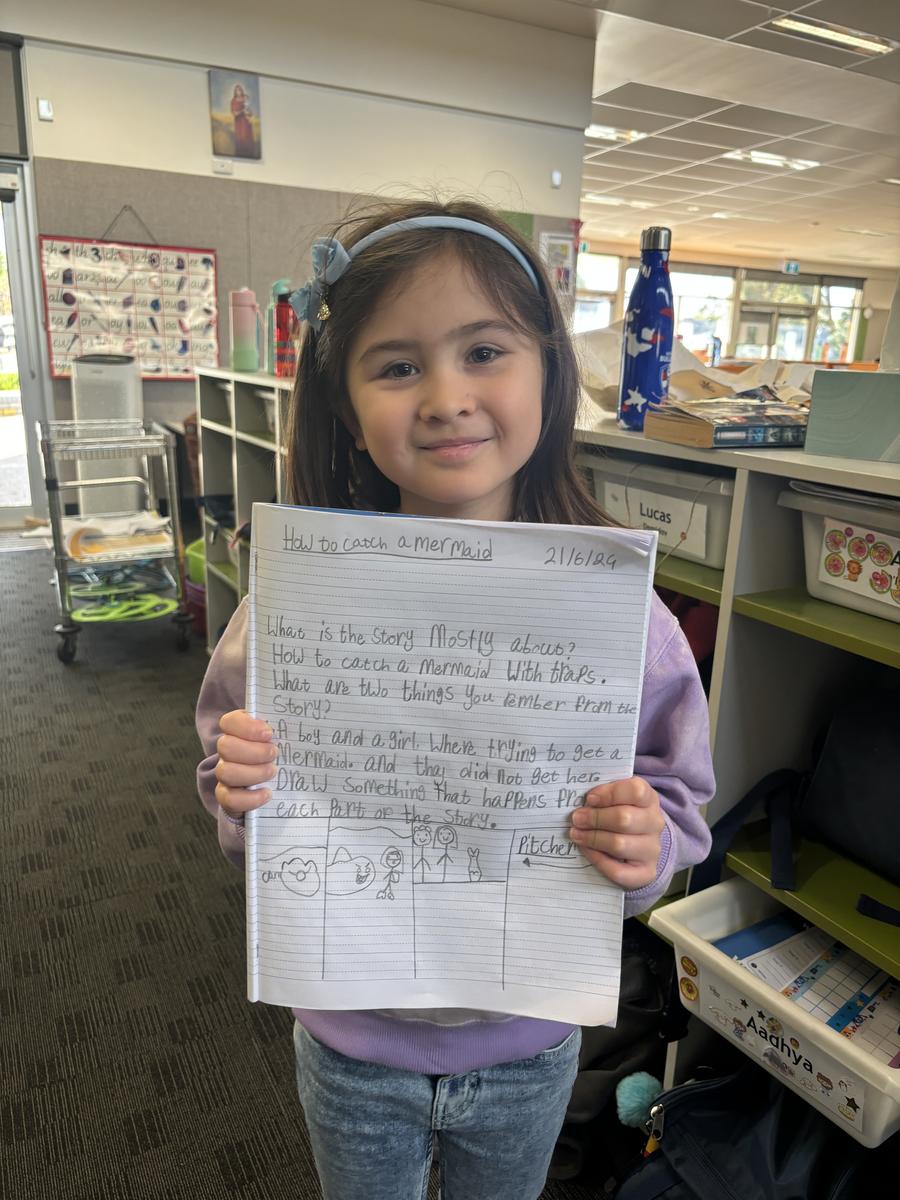 How to catch a mermaid
21/6/24
What is the Story Mostly about?
How to catch a Mermaid With traps.
What are two things You rember from the
Story?
A boy and a girl. Where trying to get a
Mermaid. and thay did not get her.
Draw Something That happens
each Part of the Story.
Pitcher
Lucas
Aadhya